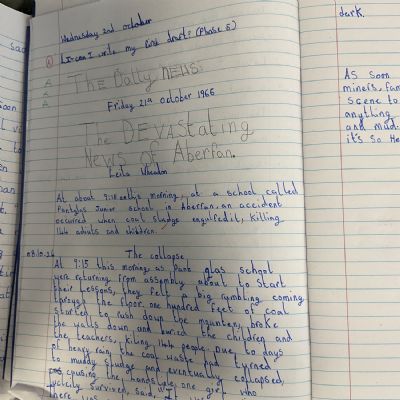 Wednesday 2nd october
I can write my first draft (Phase 5)
The Daily News
Friday 21st october 1966
The DEVAStating
News of Aberfan.
Leila
At about 9:18 this morning, at a school called
Pantglas Junior school in Aberfan, an accident
occurred when coal sludge engulfed it, killing
144 adults and children.
The collapse
At 9:15 this morning, as pant glas school
were returning from assembly about to start
their lessons, they felt a big rumbling coming
through the floor. one hundred feet of coal
started to rush down the mounten, broke
the walls down and buried the children and
the teachers, killing 144 people. Due to days
of heavy rain, the coal waste had turned
to muddy sludge and eventually collapsed,
causing the landslide. one girl who
survived, said, "I
there was
dark.
As soon
miners, fam
scene to
anything
and mud.
it's so He